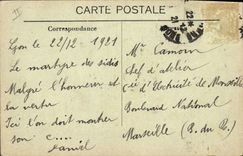 CARTE POSTALE
Correspondance
Lyon le 22/12 - 1921
Le martyre des sidis
Malgré l'honneur et
la vertu
Ici l'on doit marcher
son C...
Daniel
Mr Camoin
Chef d'atelier
Cie d'Electricité de Marseille
Boulevard National
Marseille (B. du R.)